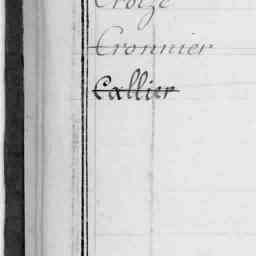 Croize
Cronnier
Callier